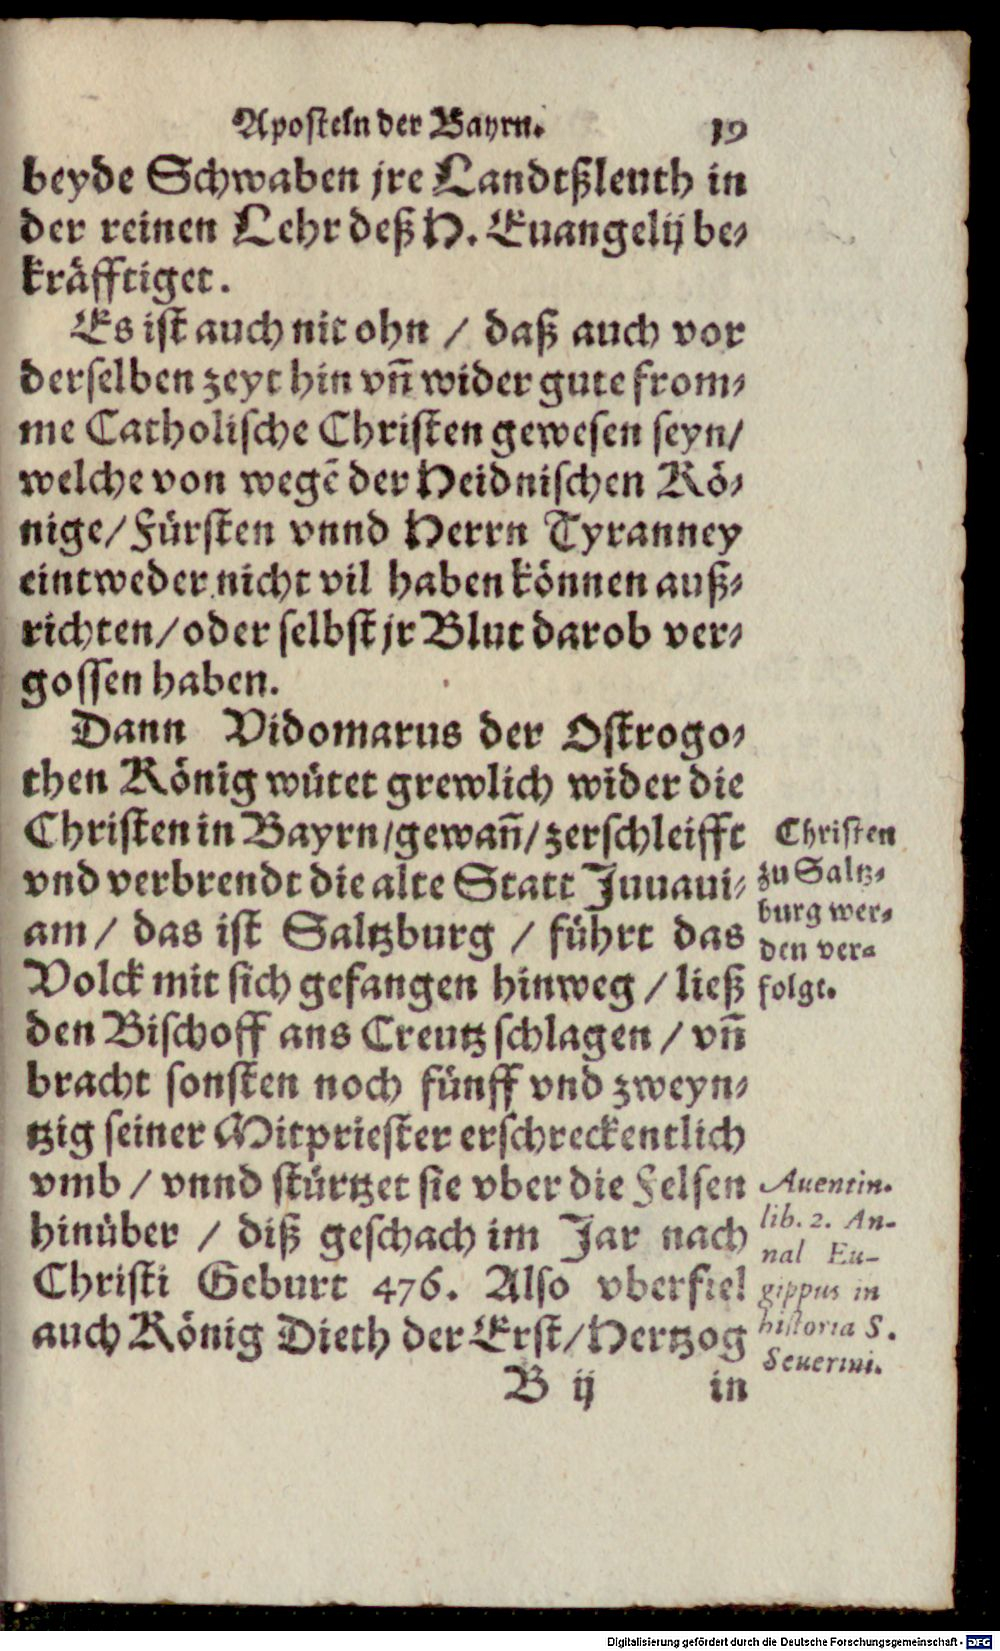 Aposteln der Bayrn. 19
beyde Schwaben jre Landtßleuth in
der reinen Lehr deß H. Euangelij be-
kräfftiget.
Es ist auch nit ohn / daß auch vor
derselben zeyt hin vñ wider gute from-
me Catholische Christen gewesen seyn/
welche von wegẽ der Heidnischen Kö-
nige/ Fürsten vnnd Herrn Tyranney
eintweder nicht vil haben können auß-
richten/ oder selbst jr Blut darob ver-
gossen haben.
Dann Vidomarus der Ostrogo-
then König wütet grewlich wider die
Christen in Bayrn/ gewañ/ zerschleifft
vnd verbrendt die alte Statt Juuaui-
am / das ist Saltzburg / führt das
Volck mit sich gefangen hinweg / ließ
den Bischoff ans Creutz schlagen / vñ
bracht sonsten noch fünff vnd zweyn-
tzig seiner Mitpriester erschreckentlich
vmb / vnnd stürtzet sie vber die Felsen
hinüber / diß geschach im Jar nach
Christi Geburt 476. Also vberfiel
auch König Dieth der Erst/ Hertzog
B ij in
Christen
zu Saltz-
burg wer-
den ver-
folgt.
Auentin.
lib. 2. An-
nal Eu-
gippus in
historia S.
Seuerini.
Digitalisierung gefördert durch die Deutsche Forschungsgemeinschaft - DFG